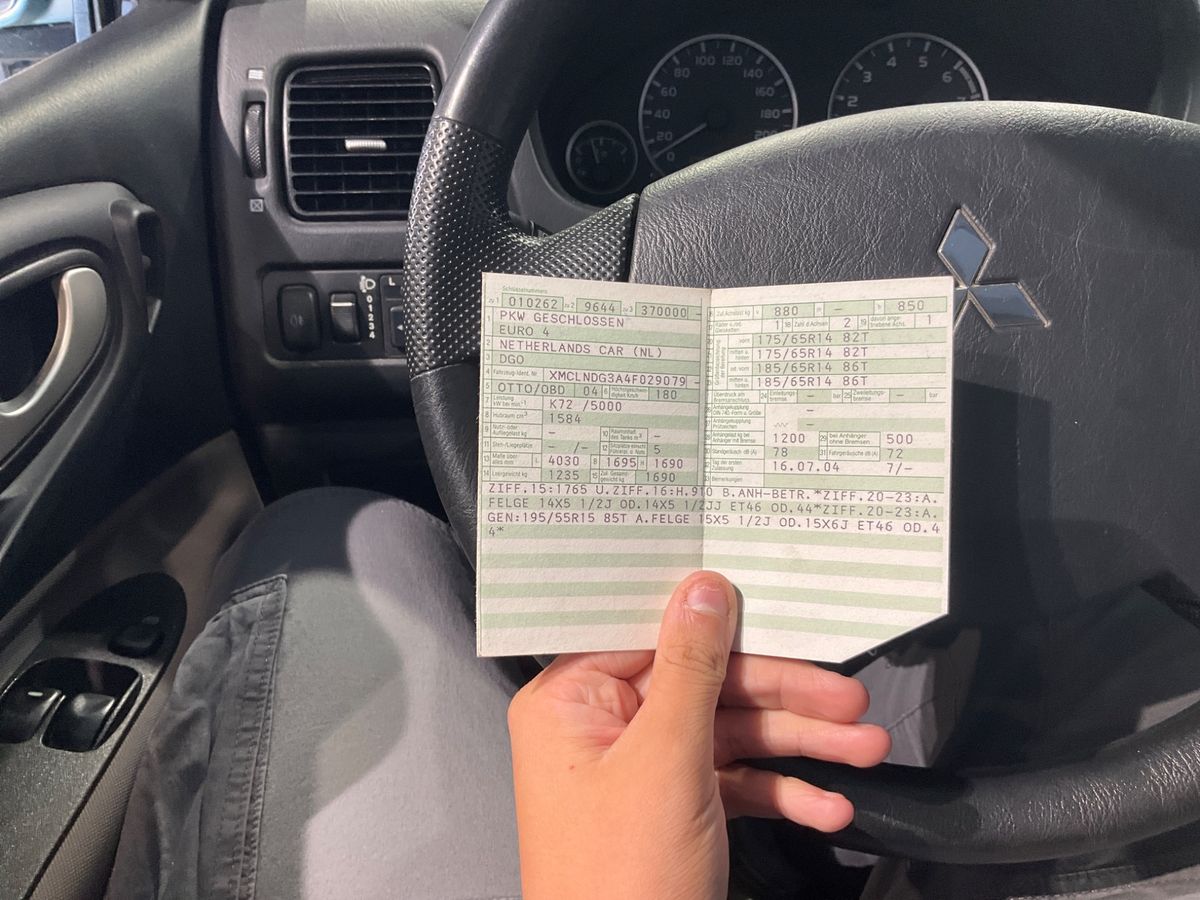 100 120
80 140
60 160
40 180
20 200
0
4 5
3 6
2 7
0
1
2
3
4
L
Schlüsselnummern
zu 1 010262 zu 2 9644 zu 3 370000 –
1 PKW GESCHLOSSEN
EURO 4
2 NETHERLANDS CAR (NL)
3 DGO
4 Fahrzeug-Ident. Nr. XMCLNDG3A4F029079 –
5 OTTO/OBD 04 6 Höchstgeschwindigkeit km/h 180
7 Leistung kW bei min⁻¹ K72 /5000
8 Hubraum cm³ 1584
9 Nutz- oder Aufliegelast kg – 10 Rauminhalt des Tanks m³ –
11 Steh-/Liegeplätze – /– 12 Sitzplätze einschl. Führerpl. u. Nots. 5
13 Maße über alles mm L 4030 B 1695 H 1690
14 Leergewicht kg 1235 15 Zul. Gesamtgewicht kg 1690
Zul. Achslast kg v 880 m – h 850
Räder u./od. Gleisketten 1 18 Zahl d. Achsen 2 19 davon angetriebene Achs. 1
vorn 175/65R14 82T
mitten u. hinten 175/65R14 82T
od. vorn 185/65R14 86T
mitten u. hinten 185/65R14 86T
Überdruck am Bremsanschluss 24 Einleitungsbremse – bar 25 Zweileitungsbremse – bar
Anhängekupplung DIN 740.. Form u. Größe –
Anhängekupplung Prüfzeichen –
Anhängelast kg bei Anhänger mit Bremse 1200 29 bei Anhänger ohne Bremsen 500
Standgeräusch dB (A) 78 31 Fahrgeräusche dB (A) 72
Tag der ersten Zulassung 16.07.04 7/–
Bemerkungen
ZIFF.15:1765 U.ZIFF.16:H.910 B.ANH-BETR.*ZIFF.20-23:A.
FELGE 14X5 1/2J OD.14X5 1/2JJ ET46 OD.44*ZIFF.20-23:A.
GEN:195/55R15 85T A.FELGE 15X5 1/2J OD.15X6J ET46 OD.4
4*